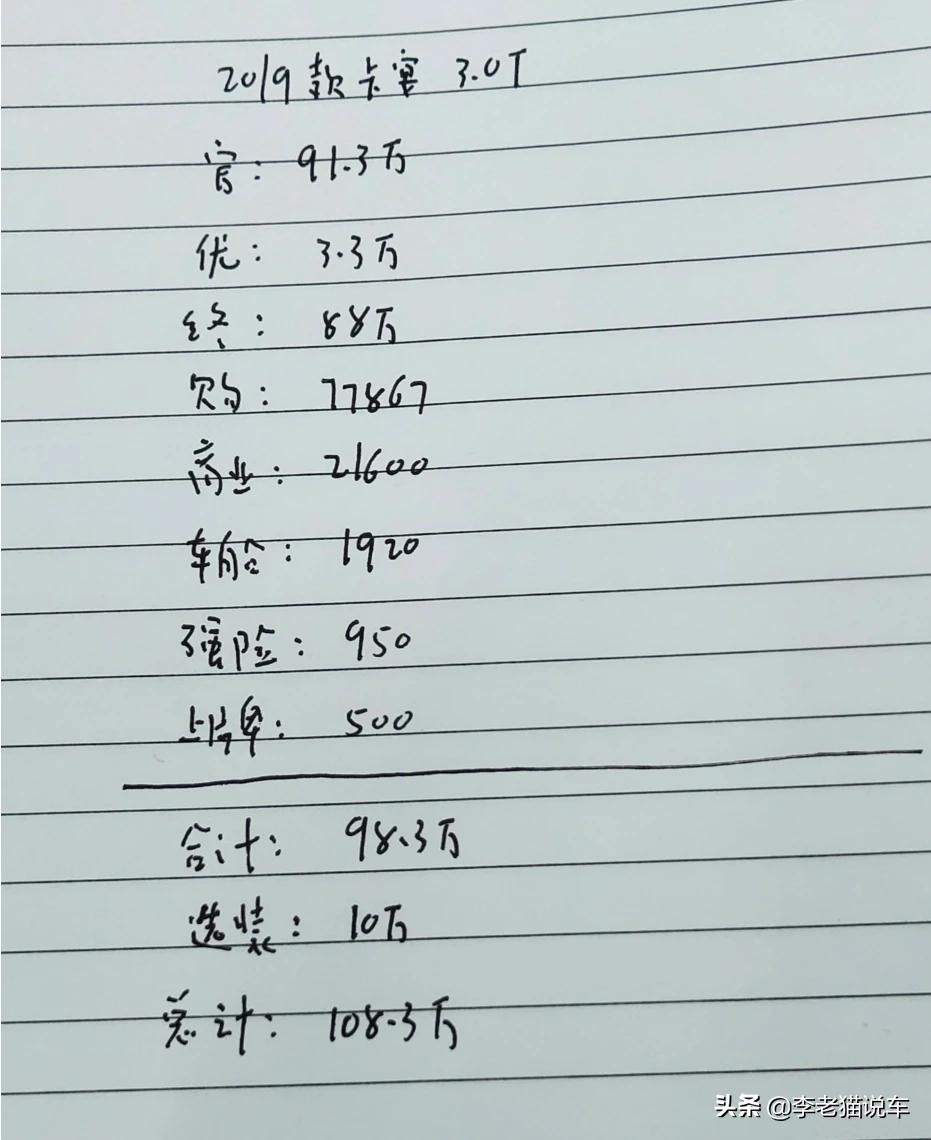 2019款卡宴 3.0T
官: 91.3万
优: 3.3万
终: 88万
购: 77867
商业: 21600
车船: 1920
强险: 950
上牌: 500
合计: 98.3万
选装: 10万
总计: 108.3万
头条 @李老猫说车